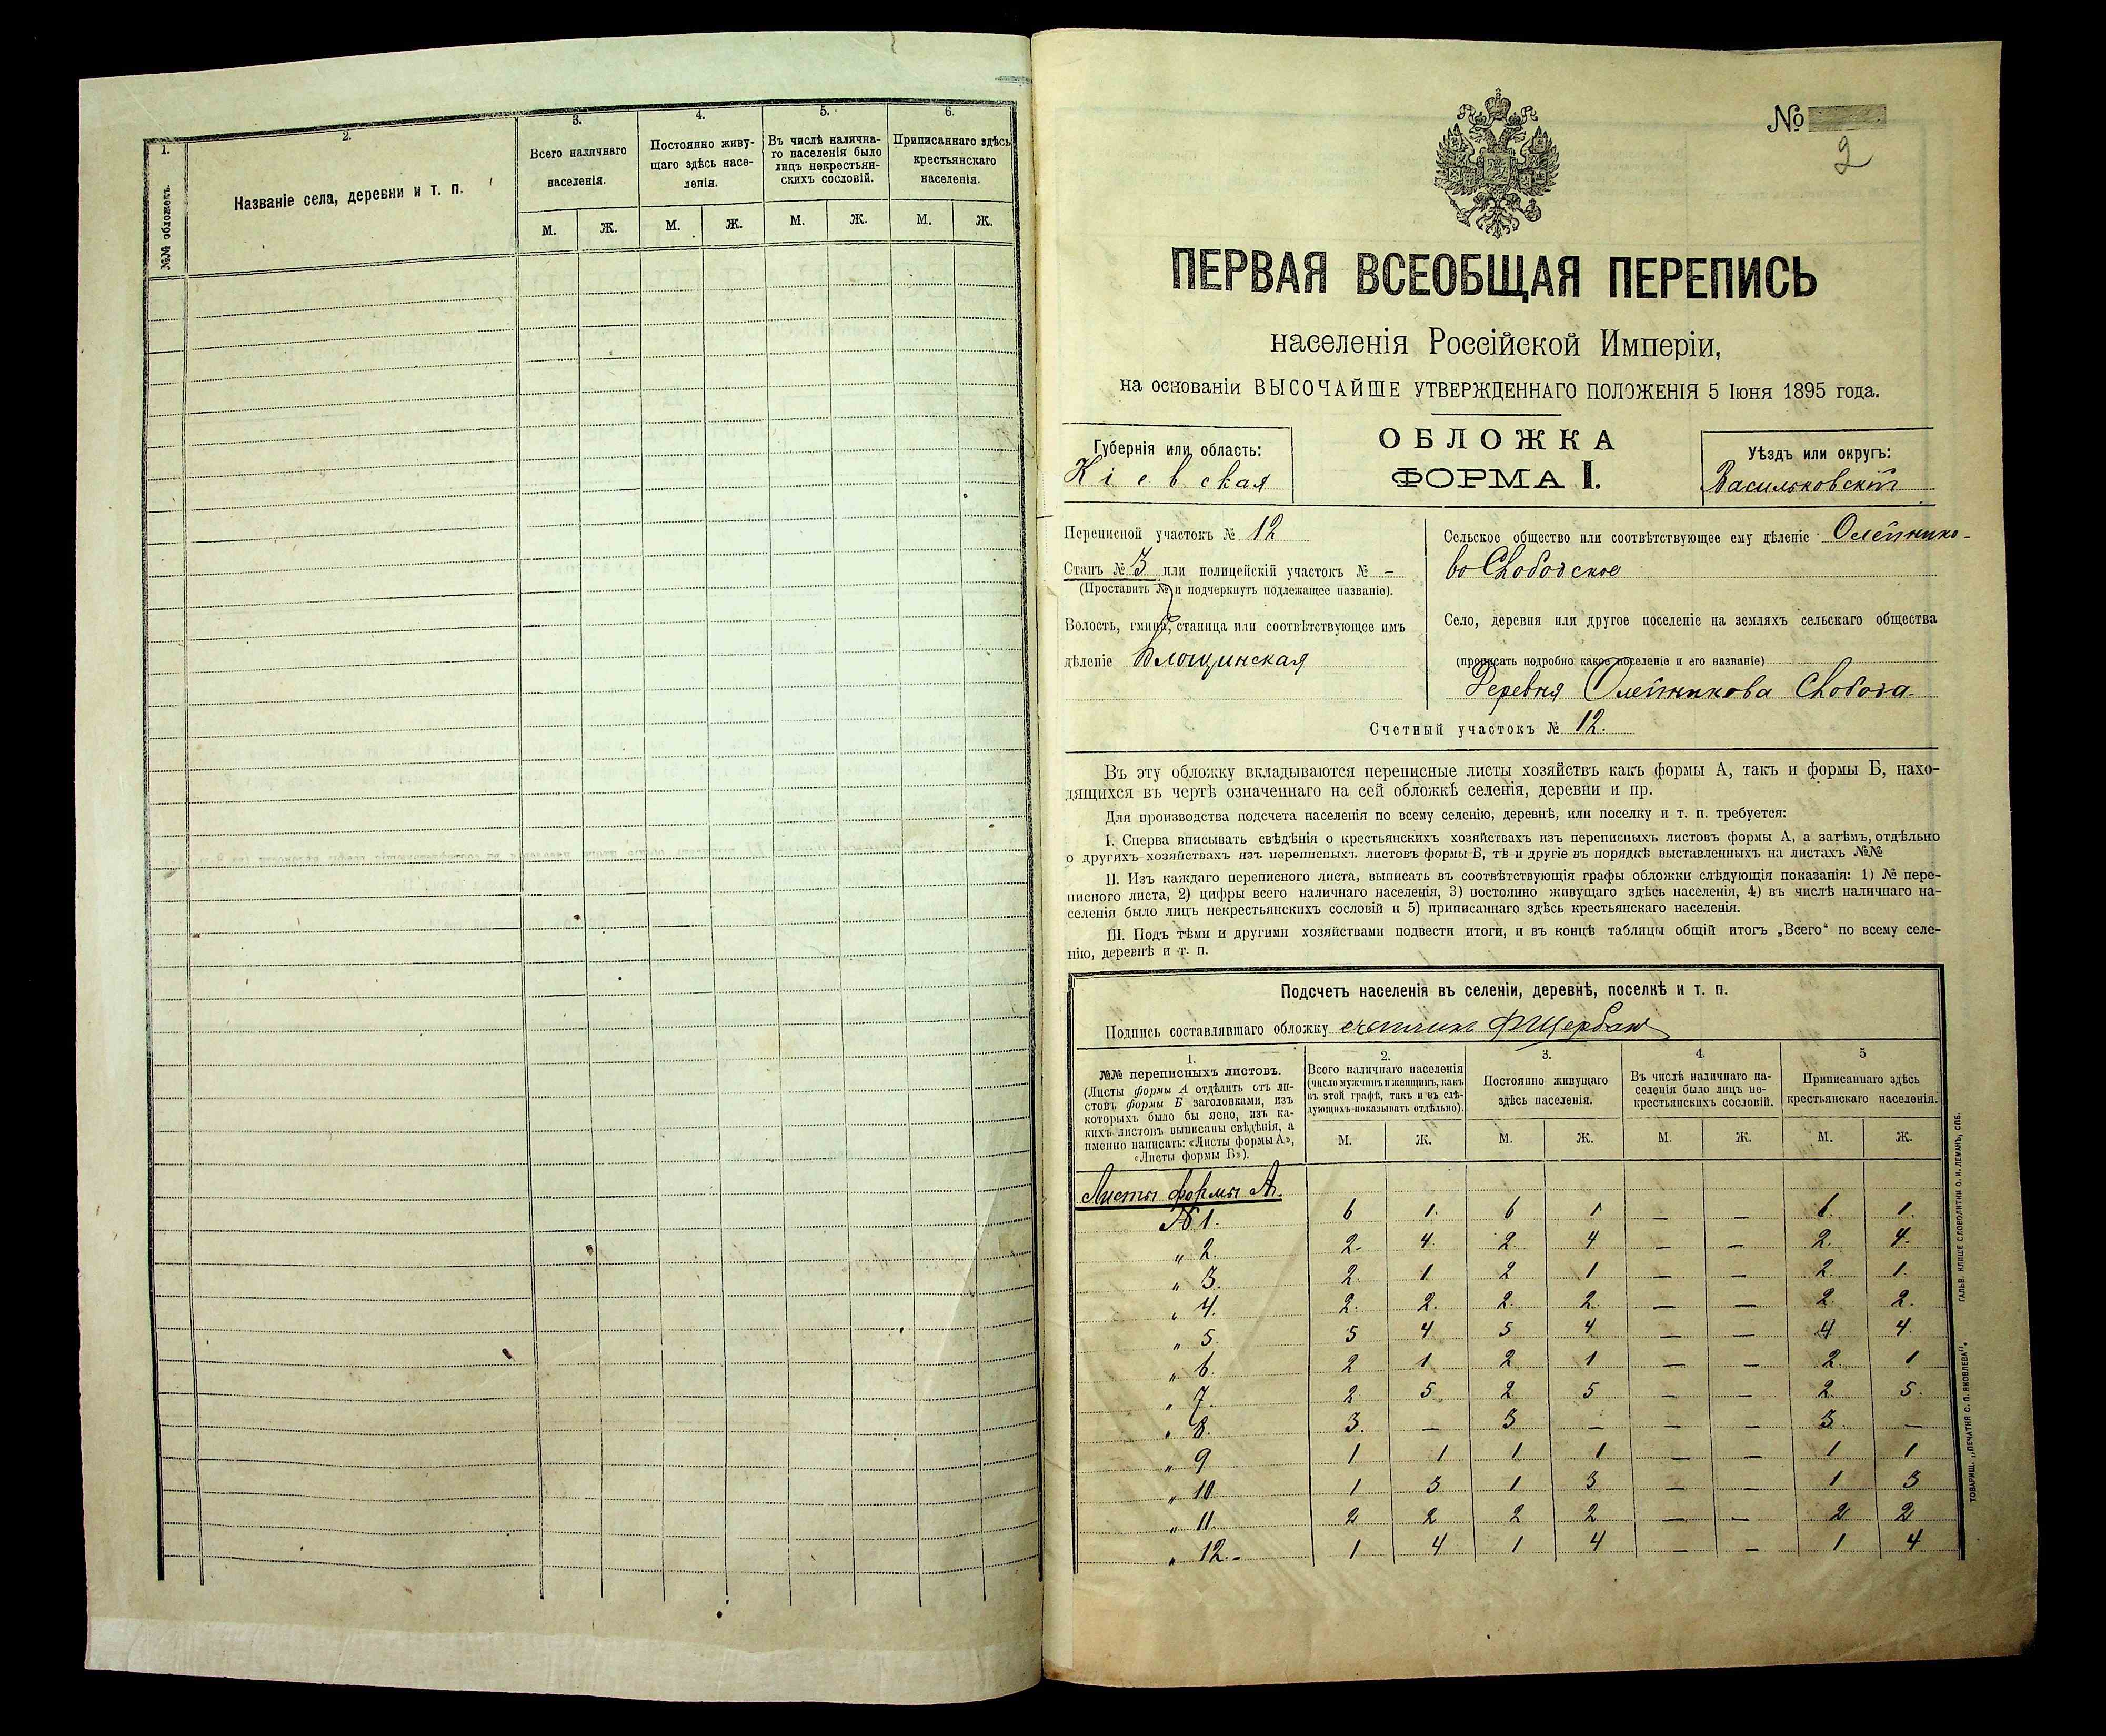 1.
2.
3.
4.
5.
6.
№№ обложекъ.
Названіе села, деревни и т. п.
Всего наличнаго
населенія.
Постоянно живу-
щаго здѣсь насе-
ленія.
Въ числѣ налична-
го населенія было
лицъ некрестьян-
скихъ сословій.
Приписаннаго здѣсь
крестьянскаго
населенія.
М. Ж. М. Ж. М. Ж. М. Ж.
№
2
ПЕРВАЯ ВСЕОБЩАЯ ПЕРЕПИСЬ
населенія Россійской Имперіи,
на основаніи ВЫСОЧАЙШЕ УТВЕРЖДЕННАГО ПОЛОЖЕНІЯ 5 Іюня 1895 года.
Губернія или область:
Кіевская
ОБЛОЖКА
ФОРМА I.
Уѣздъ или округъ:
Васильковскій
Переписной участокъ № 12
Станъ № 3 или полицейскій участокъ № -
(Проставить № и подчеркнуть подлежащее названіе).
Волость, гмина, станица или соотвѣтствующее имъ
дѣленіе Блощинская
Сельское общество или соотвѣтствующее ему дѣленіе Олейнико-
во Слободское
Село, деревня или другое поселеніе на земляхъ сельскаго общества
(прописать подробно какое поселеніе и его названіе)
Деревня Олейникова Слобода
Счетный участокъ № 12.
Въ эту обложку вкладываются переписные листы хозяйствъ какъ формы А, такъ и формы Б, нахо-
дящихся въ чертѣ означеннаго на сей обложкѣ селенія, деревни и пр.
Для производства подсчета населенія по всему селенію, деревнѣ, или поселку и т. п. требуется:
I. Сперва вписывать свѣдѣнія о крестьянскихъ хозяйствахъ изъ переписныхъ листовъ формы А, а затѣмъ, отдѣльно
о другихъ хозяйствахъ изъ переписныхъ листовъ формы Б, тѣ и другіе въ порядкѣ выставленныхъ на листахъ №№
II. Изъ каждаго переписного листа, выписать въ соотвѣтствующія графы обложки слѣдующія показанія: 1) № пере-
писного листа, 2) цифры всего наличнаго населенія, 3) постоянно живущаго здѣсь населенія, 4) въ числѣ наличнаго на-
селенія было лицъ некрестьянскихъ сословій и 5) приписаннаго здѣсь крестьянскаго населенія.
III. Подъ тѣми и другими хозяйствами подвести итоги, и въ концѣ таблицы общій итогъ „Всего“ по всему селе-
нію, деревнѣ и т. п.
Подсчетъ населенія въ селеніи, деревнѣ, поселкѣ и т. п.
Подпись составлявшаго обложку Ф Щербак
1.
№№ переписныхъ листовъ.
(Листы формы А отдѣлить отъ ли-
стовъ формы Б заголовками, изъ
которыхъ было бы ясно, изъ ка-
кихъ листовъ выписаны свѣдѣнія, а
именно написать: «Листы формы А»,
«Листы формы Б»).
2.
Всего наличнаго населенія
(число мужчинъ и женщинъ, какъ
въ этой графѣ, такъ и въ слѣ-
дующихъ показывать отдѣльно).
3.
Постоянно живущаго
здѣсь населенія.
4.
Въ числѣ наличнаго на-
селенія было лицъ не-
крестьянскихъ сословій.
5
Приписаннаго здѣсь
крестьянскаго населенія.
М. Ж. М. Ж. М. Ж. М. Ж.
Листы формы А.
№ 1. 6 1. 6 1 — — 6. 1.
„ 2. 2. 4. 2. 4 — — 2. 4.
„ 3. 2. 1 2 1 — — 2 1.
„ 4. 2. 2. 2. 2. — — 2. 2.
„ 5. 5 4 5 4 — — 4 4.
„ 6. 2 1 2 1 — — 2. 1
„ 7. 2 5 2 5 — — 2. 5.
„ 8. 3. — 3 — — — 3. —
„ 9 1 1 1 1 — — 1 1
„ 10 1 3 1 3 — — 1 3
„ 11. 2 2 2 2 — — 2 2
„ 12.- 1 4 1 4 — — 1 4
ТОВАРИЩ. „ПЕЧАТНЯ С. П. ЯКОВЛЕВА“.
ГАЛЬВ. КЛИШЕ СЛОВОЛИТНИ О. И. ЛЕМАНЪ, СПБ.